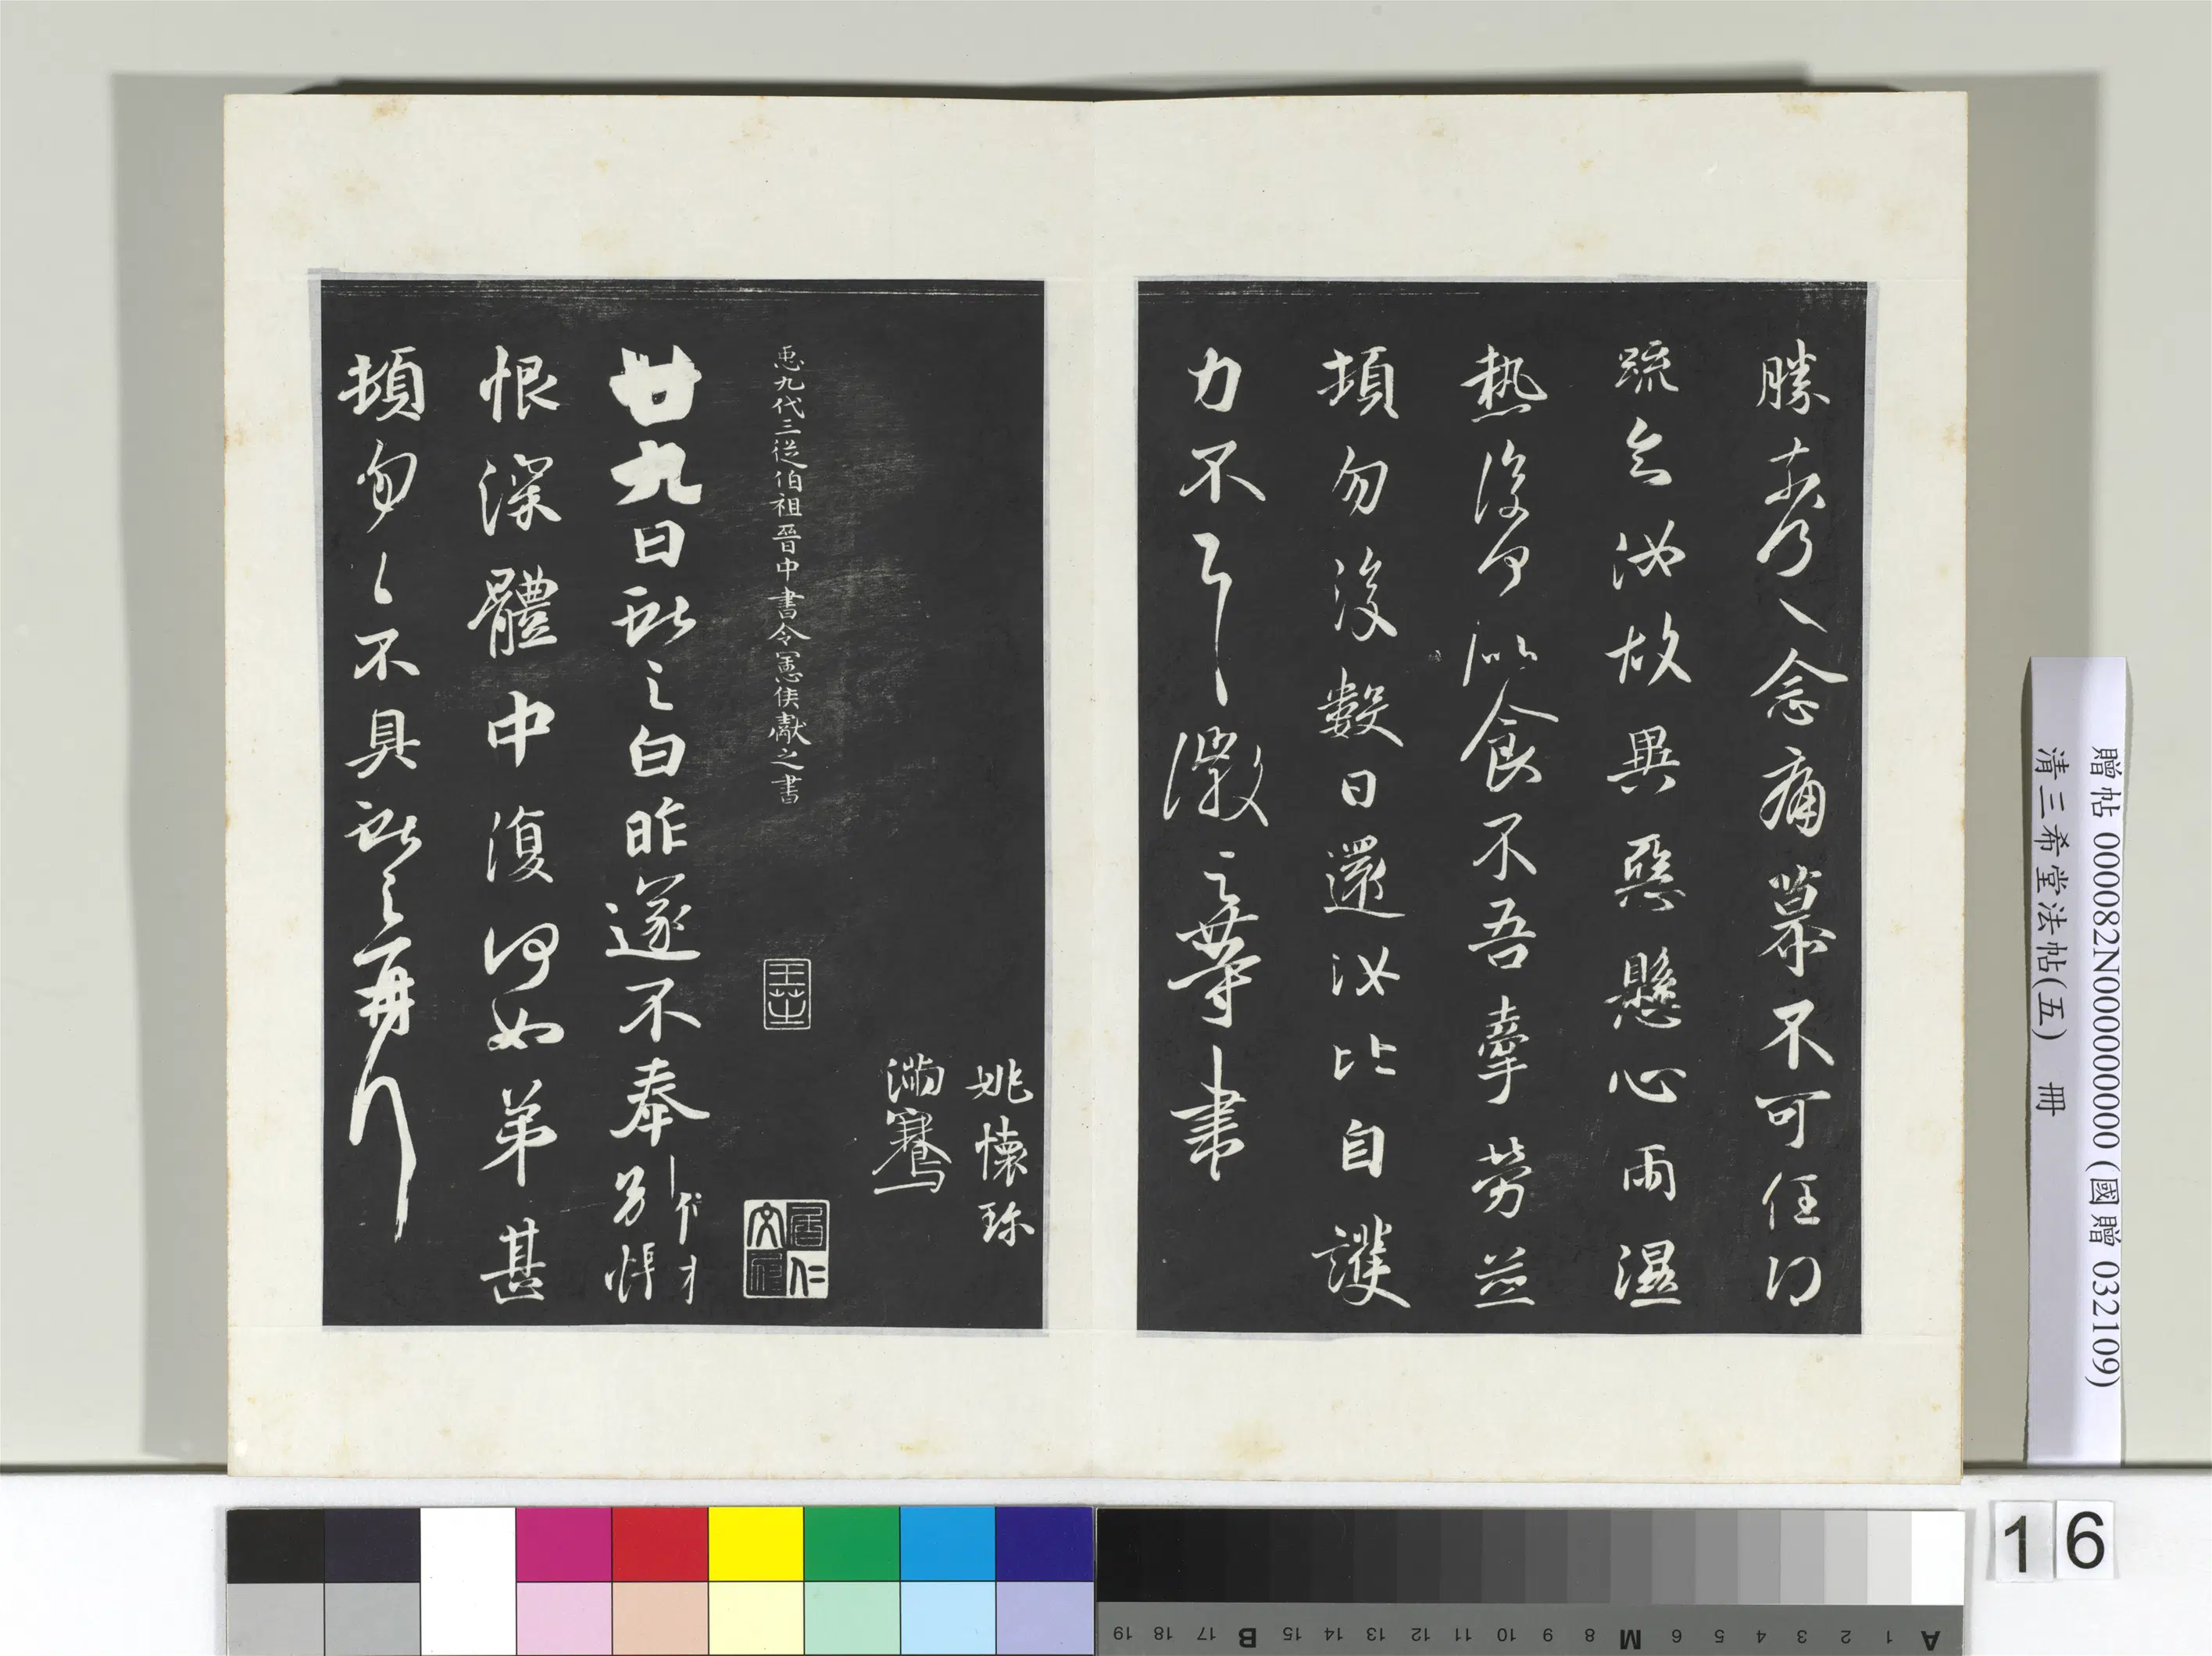 勝奈何奈何念痛慕不可任得
疏知汝故異惡懸心雨濕
熱復何似食不吾牽勞並
頓勿復數日還汝比自護
力不 徽之等書
姚懷珍
滿騫
𢘑九代三從伯祖晉中書令憲侯獻之書
廿九日獻之白昨遂不奉別悵
恨深體中復何如弟甚
頓勿勿不具獻之再拜
贈帖 000082N000000000 (國贈 032109)
清三希堂法帖(五) 冊
16
A 1 2 3 4 5 6 M 8 9 10 11 12 13 14 15 B 17 18 19